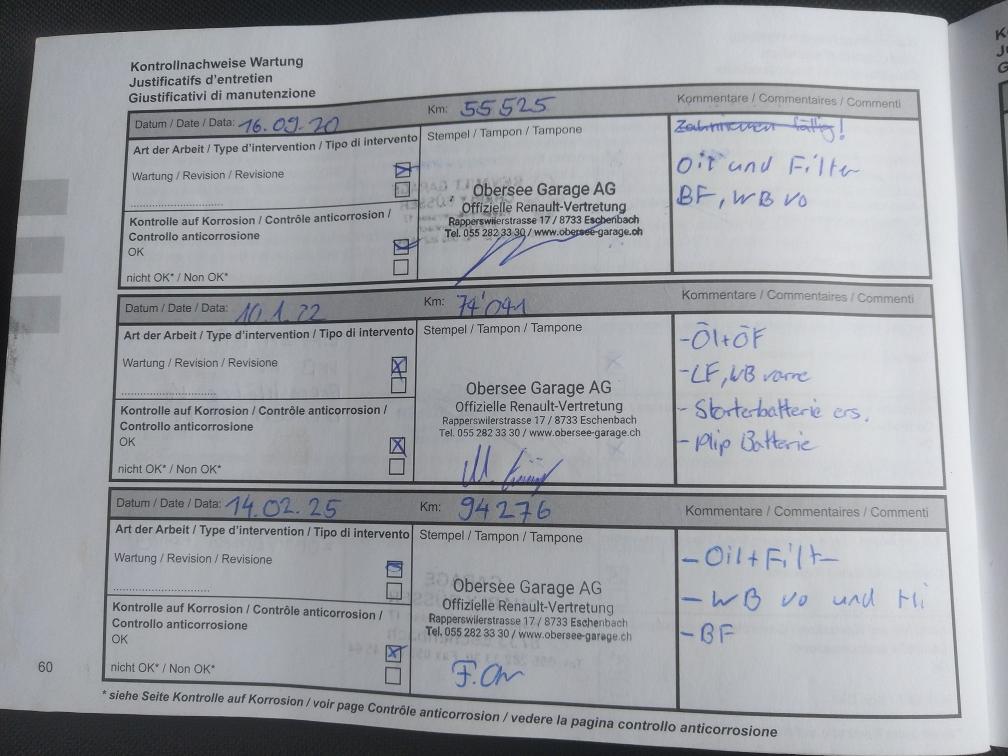 Kontrollnachweise Wartung
Justificatifs d'entretien
Giustificativi di manutenzione
Datum / Date / Data: 16.09.20 Km: 55525 Kommentare / Commentaires / Commenti
Art der Arbeit / Type d'intervention / Tipo di intervento Stempel / Tampon / Tampone
Zahnriemen fällig!
Wartung / Revision / Revisione
Oil und Filter
BF, WB vo
Obersee Garage AG
Offizielle Renault-Vertretung
Rapperswilerstrasse 17 / 8733 Eschenbach
Tel. 055 282 33 30 / www.obersee-garage.ch
Kontrolle auf Korrosion / Contrôle anticorrosion /
Controllo anticorrosione
OK
nicht OK* / Non OK*
Datum / Date / Data: 10.1.22 Km: 74'041 Kommentare / Commentaires / Commenti
Art der Arbeit / Type d'intervention / Tipo di intervento Stempel / Tampon / Tampone
Wartung / Revision / Revisione
- Öl+ÖF
- LF, WB vorne
- Starterbatterie ers.
- Plip Batterie
Obersee Garage AG
Offizielle Renault-Vertretung
Rapperswilerstrasse 17 / 8733 Eschenbach
Tel. 055 282 33 30 / www.obersee-garage.ch
Kontrolle auf Korrosion / Contrôle anticorrosion /
Controllo anticorrosione
OK
nicht OK* / Non OK*
Datum / Date / Data: 14.02.25 Km: 94276 Kommentare / Commentaires / Commenti
Art der Arbeit / Type d'intervention / Tipo di intervento Stempel / Tampon / Tampone
Wartung / Revision / Revisione
- Oil+Filt
- WB vo und Hi
- BF
Obersee Garage AG
Offizielle Renault-Vertretung
Rapperswilerstrasse 17 / 8733 Eschenbach
Tel. 055 282 33 30 / www.obersee-garage.ch
Kontrolle auf Korrosion / Contrôle anticorrosion /
Controllo anticorrosione
OK
nicht OK* / Non OK*
60
* siehe Seite Kontrolle auf Korrosion / voir page Contrôle anticorrosion / vedere la pagina controllo anticorrosione